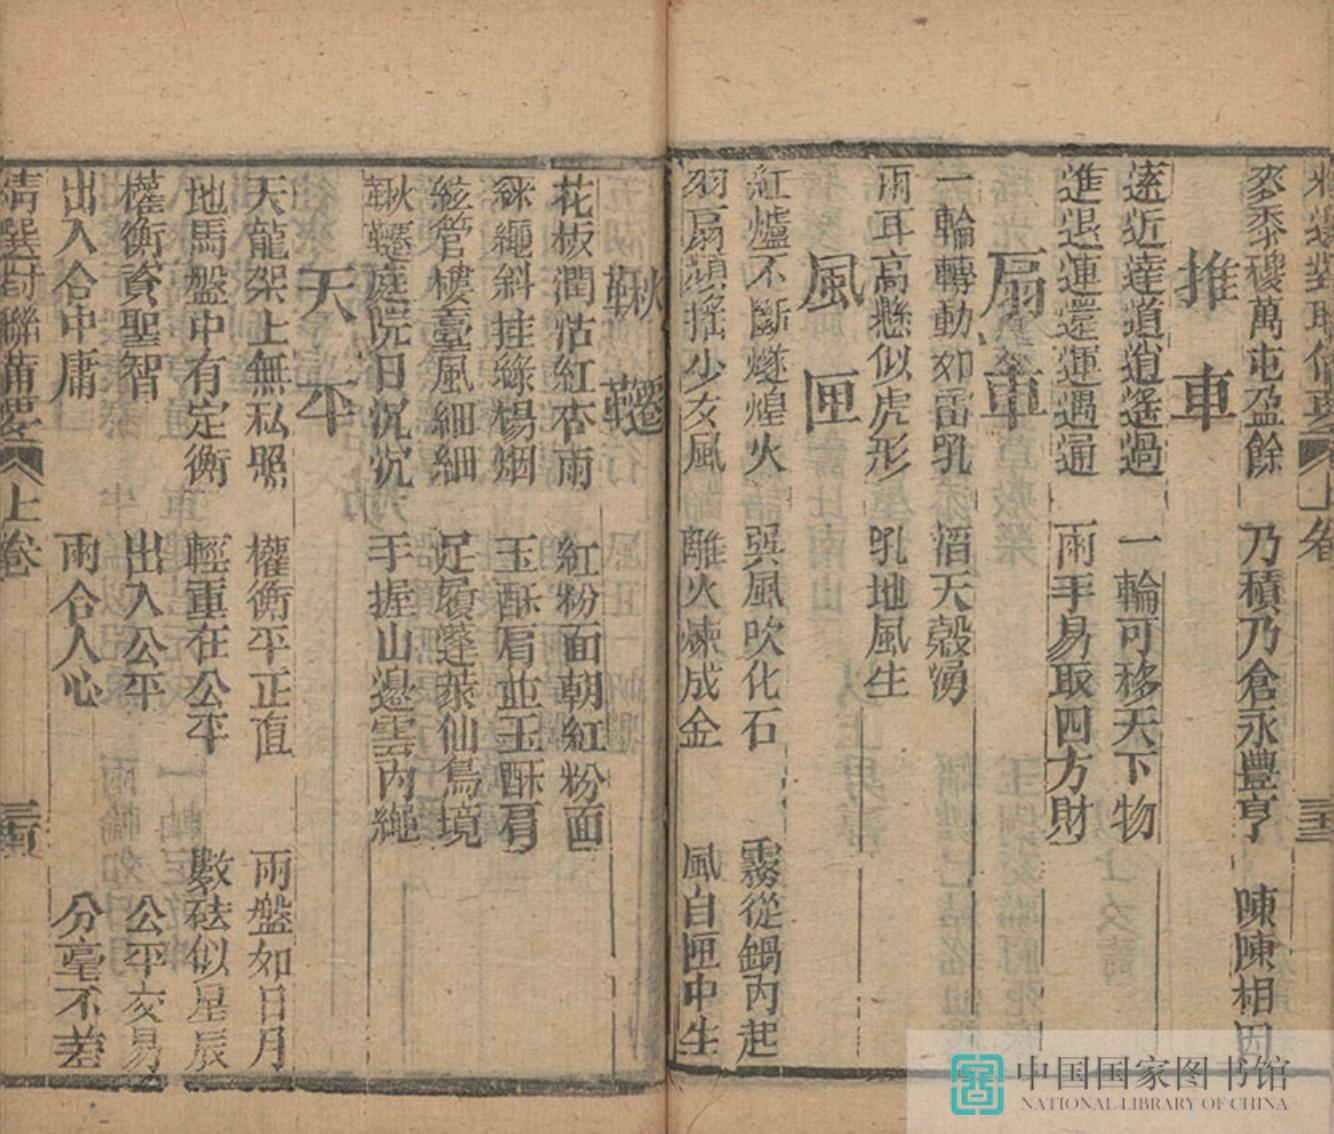 精選對聯備要 上卷 三
麥黍穰穰萬屯盈餘 乃積乃倉永豐亨 陳陳相因
推車
遠近達道逍遙過 一輪可移天下物
進退連還運遇通 兩手易取四方財
扇車
一輪轉動如雷吼 滔天穀湧
兩耳高懸似虎形 吼地風生
風匣
紅爐不斷燧煌火 巽風吹化石 霧從鍋內起
羽扇頻搖少女風 離火煉成金 風自匣中生
鞦韆
花板潤沾紅杏雨 紅粉面朝紅粉面
綵繩斜挂綠楊烟 玉酥肩並玉酥肩
絃管樓臺風細細 足履蓬萊仙鳥境
鞦韆庭院日沉沉 手握山邊雲內繩
天平
天龍架上無私照 權衡平正直 兩盤如日月
地馬盤中有定衡 輕重在公平 數砝似星辰
權衡資聖智 出入公平 公平交易
出入合中庸 兩合人心 分毫不差
精選對聯備要 上卷
中国国家图书馆
NATIONAL LIBRARY OF CHINA